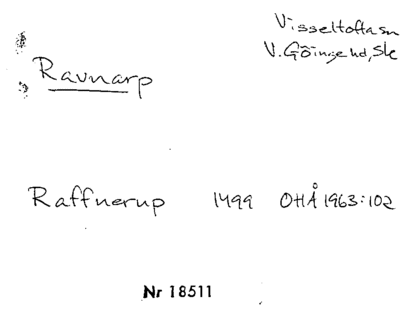 Visseltofta sn
V. Göinge hd, Sk
Ravnarp
Raffnerup 1499 OHÅ 1963:102
Nr 18511